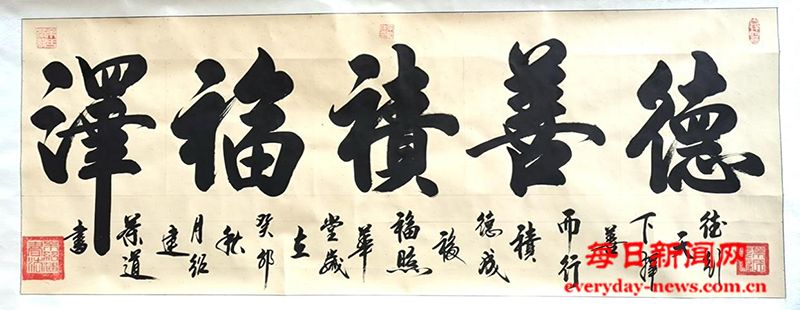 德善積福澤
德到
天
下擇
善
而行
積
德成
福
福照
華
堂歲
在
癸卯
秋
月紹
建
葉道
書
每日新闻网
everyday-news.com.cn